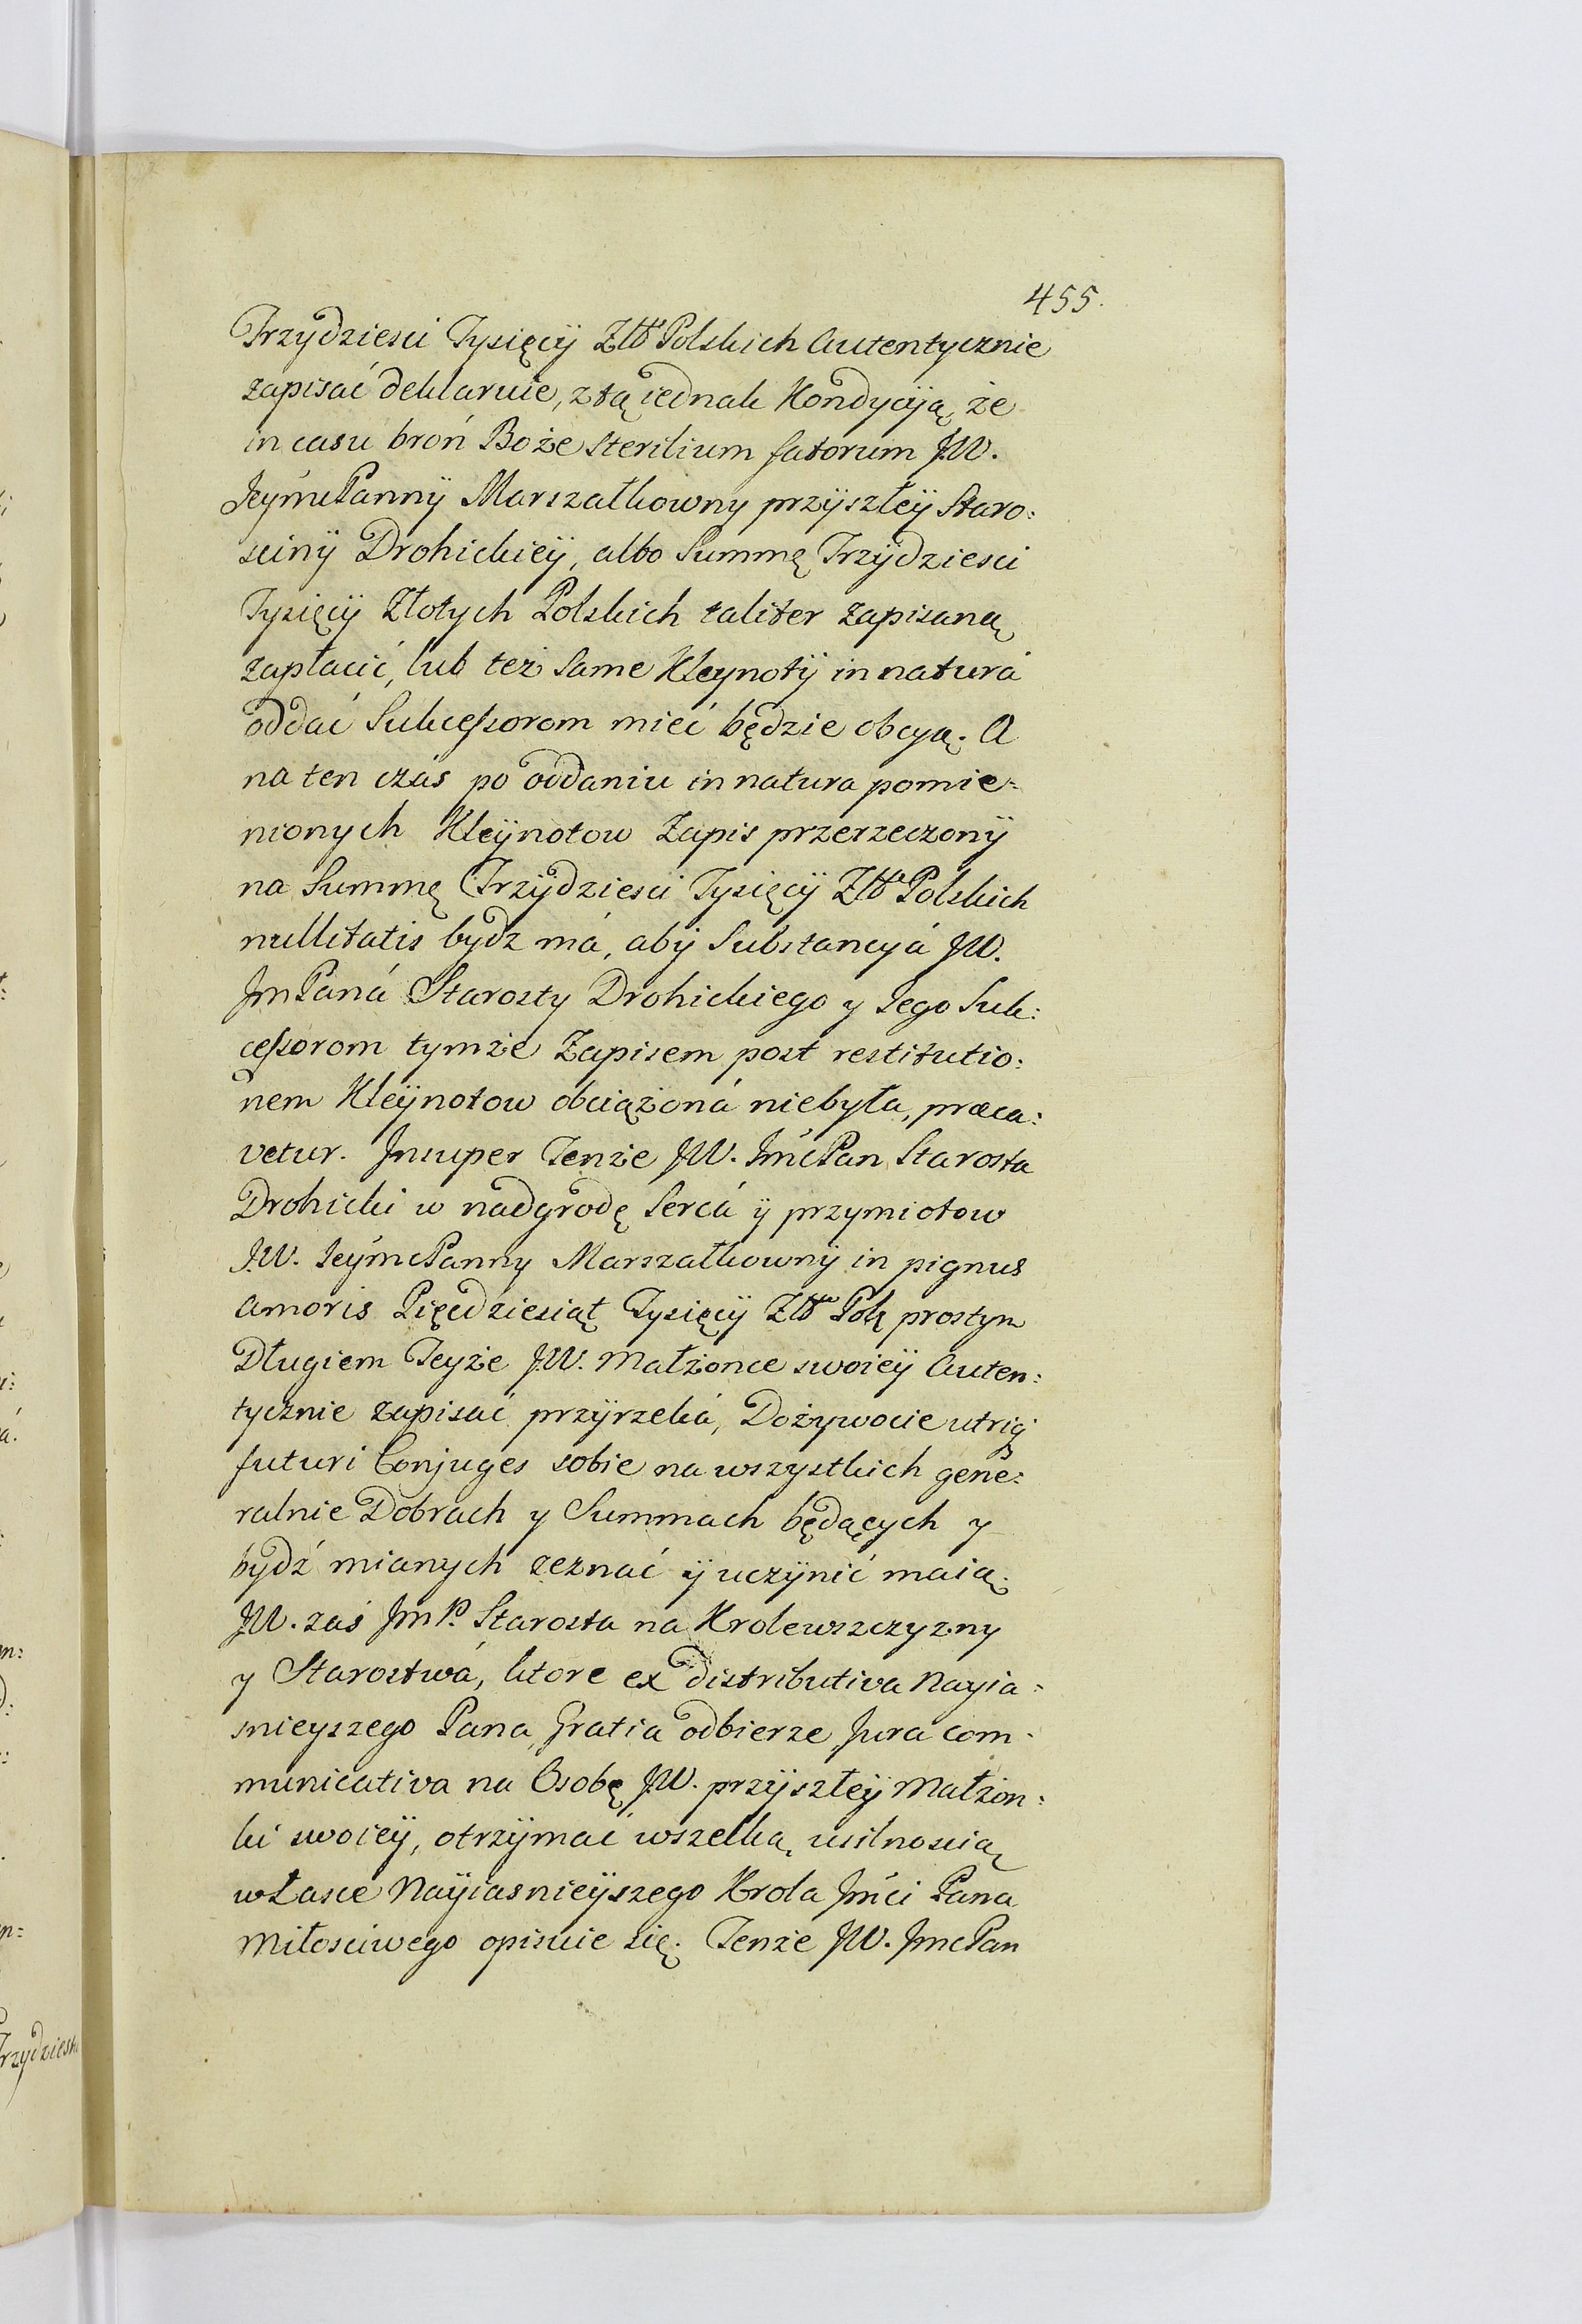 455.
Trzydziesci Tysięcÿ Złł Polskich Autentycznie
zapisać deklaruie, z tą iednak Kondycÿją, że
in casu broń Boże sterilium fatorum J.W.
JeÿmcPannÿ Marszałkowny przÿszłeÿ Staro:
scinÿ Drohickieÿ, albo Summę Trzÿdziesci
Tysięcÿ Złotych Polskich taliter zapisaną
zapłacić, lub też same Kleynotÿ in naturá
oddać Sukceſsorom mieć będzie obcyą. A
na ten czás po oddaniu in natura pomie:
nionych Kleÿnotow Zapis przerzeczonÿ
na Summę Trzÿdziesci Tysięcÿ Złł Polskich
nullitatis bydz má, abÿ Substancyá J.W.
JmPaná Starosty Drohickiego y Jego Suk:
ceſsorom tymże Zapisem post restitutio:
nem Kleÿnotow obciążoná niebyła, praeca:
vetur. Insuper Tenże J.W. JmćPan Starosta
Drohicki w nadgrodę Sercá ÿ przymiotow
J.W. JeymcPanny Marszałkownÿ in pignus
amoris Pięcdziesiąt Tysięcÿ Złł Polſ prostym
Długiem Teyże J.W. Małżonce swoieÿ Auten:
tycznie zapisać przÿrzeká, Dożywocie utriq
futuri Conjuges sobie na wszystkich gene:
ralnie Dobrach y Summach będących y
bydź mianych zeznać ÿ uczÿnić maią.
J.W. zaś Jm P. Starosta na Krolewszczyzny
y Starostwá, ktore ex distributiva Nayia:
snieyszego Pana Gratia odbierze Jura com:
municativa na Osobę J.W. przÿszłeÿ Małżon:
ki swoieÿ, otrzÿmać wszelką usilnoscią
w Łasce Naÿiasnieÿszego Krola Jmći Pana
Miłosciwego opisuie się. Tenże J.W. JmcPan